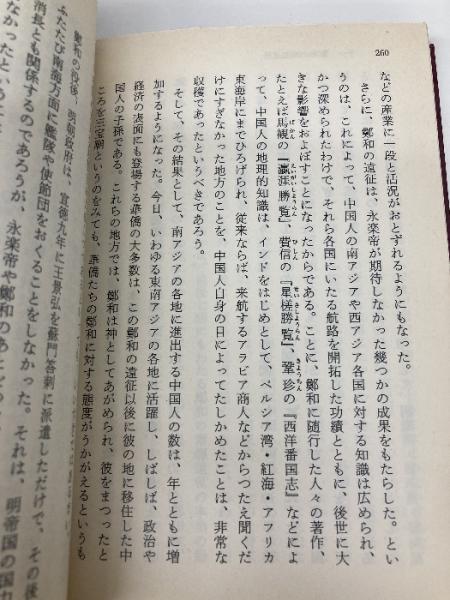 260
などの産業に一段と活況がおとずれるようにもなった。
さらに、鄭和の遠征は、永楽帝が期待しなかった幾つかの成果をもたらした。とい
うのは、これによって、中国人の南アジアや西アジア各国に対する知識は広められ、
かつ深められたわけで、それら各国にいたる航路を開拓した功績とともに、後世に大
きな影響をおよぼすことになったからである。ことに、鄭和に随行した人々の著作、
たとえば馬観の『瀛涯勝覧』、費信の『星槎勝覧』、鞏珍の『西洋番国志』などによ
って、中国人の地理的知識は、インドをはじめとして、ペルシア湾・紅海・アフリカ
東海岸にまでひろげられ、従来ならば、来航するアラビア商人などからつたえ聞くだ
けにすぎなかった地方のことを、中国人自身の目によってたしかめたことは、非常な
収穫であったというべきであろう。
そして、その結果として、南アジアの各地に進出する中国人の数は、年とともに増
加するようになった。今日、いわゆる東南アジアの各地に活躍し、しばしば、政治や
経済の表面にも登場する華僑の大多数は、この鄭和の遠征以後に彼の地に移住した中
国人の子孫である。これらの地方では、鄭和は神としてあがめられ、彼をまつったと
ころを三宝廟というのをみても、華僑たちの鄭和に対する態度がうかがえるというも
鄭和の役後、明朝政府は、宣徳九年に王景弘を蘇門答剌に派遣しただけで、その後
ふたたび南海方面に艦隊や使節団をおくることをしなかった。それは、明帝国の国力
消長とも関係するのであろうが、永楽帝や鄭和のあと
なかったという